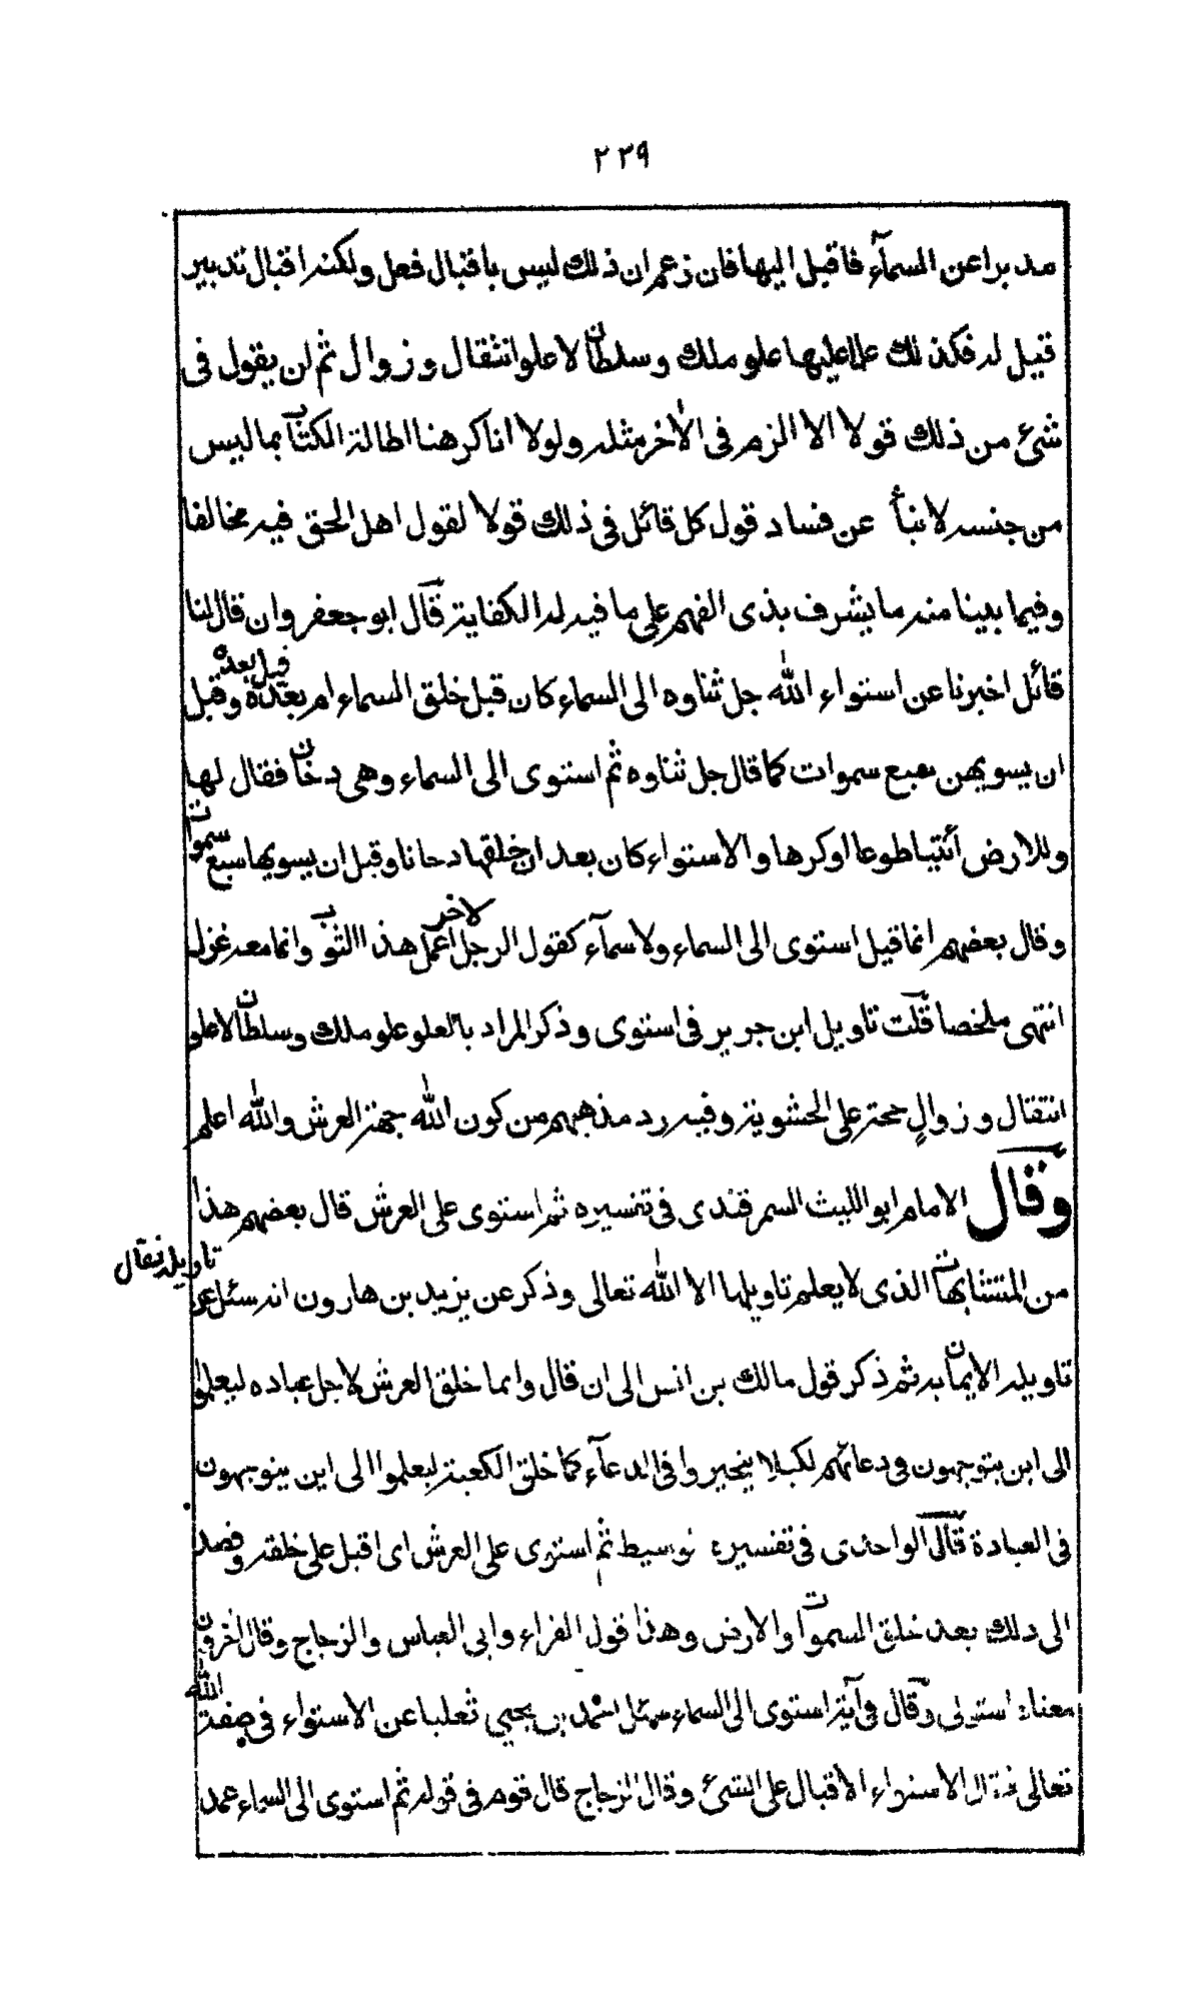 ٢٢٩
مدبرا عن السمآء فاقبل اليها فان زعم ان ذلك ليس باقبال فعل ولكنه اقبال تدبير
قيل له فكذلك علا عليها علو ملك وسلطان لا علو انتقال وزوال ثم لن يقول فى
شئ من ذلك قولا الا الزم فى الاخر مثله ولولا انا كرهنا اطالة الكتاب بما ليس
من جنسه لانبأ عن فساد قول كل قائل فى ذلك قولا لقول اهل الحق فيه مخالفا
وفيما بينا منه ما يشرف بذى الفهم على ما فيه له الكفاية قال ابو جعفر وان قال لنا
قائل اخبرنا عن استواء الله جل ثناوه الى السماء كان قبل خلق السماء ام بعده قيل بعده وقبل
ان يسويهن سبع سموات كما قال جل ثناوه ثم استوى الى السماء وهى دخان فقال لها
وللارض ائتيا طوعا او كرها والاستواء كان بعد ان خلقها دخانا وقبل ان يسويها سبع سموات
وقال بعضهم انما قيل استوى الى السماء ولا سمآء كقول الرجل لاخر اعمل هذا الثوب وانما معه غزل
انتهى ملخصا قلت تاويل ابن جرير فى استوى وذكر المراد بالعلو علو ملك وسلطان لا علو
انتقال وزوال حجة على الحشوية وفيه رد مذهبهم من كون الله جهة العرش والله اعلم
وقال الامام ابو الليث السمرقندى فى تفسيره ثم استوى على العرش قال بعضهم هذا
من المتشابهات الذى لا يعلم تاويلها الا الله تعالى وذكر عن يزيد بن هارون انه سئل عن تاويله فقال
تاويله الايمان به ثم ذكر قول مالك بن انس الى ان قال وانما خلق العرش لاجل عباده ليعلموا
الى اين يتوجهون فى دعائهم لكيلا يتحيروا فى الدعآء كما خلق الكعبة ليعلموا الى اين يتوجهون
فى العبادة قال الواحدى فى تفسيره توسيط ثم استوى على العرش اى اقبل على خلقه وقصد
الى ذلك بعد خلق السموات والارض وهذا قول الفراء وابى العباس والزجاج وقال اخرون
معناه استولى وقال فى آية استوى الى السماء سئل احمد بن يحيى ثعلبا عن الاستواء فى صفة الله
تعالى فقال الاستواء الاقبال على الشئ وقال الزجاج قال قوم فى قوله ثم استوى الى السماء عمد